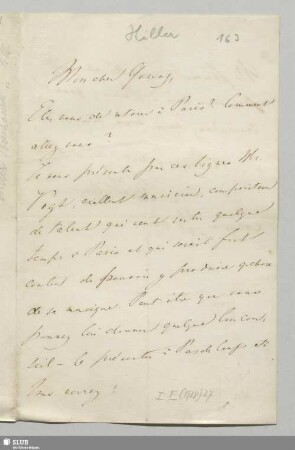 Hiller
163
Mon cher Gouvy,
Etes vous de retour à Paris? Comment
allez vous?
Je vous présente par ces lignes Mr.
Vogt, excellent musicien, compositeur
de talent qui veut rester quelque
temps à Paris et qui serait fort
content de pouvoir y produire qchose
de sa musique. Peut être que vous
pourrez lui donner quelque bon con-
seil – le présenter à Pasdeloup et
Vous verrez!
SLUB
Wir führen Wissen.